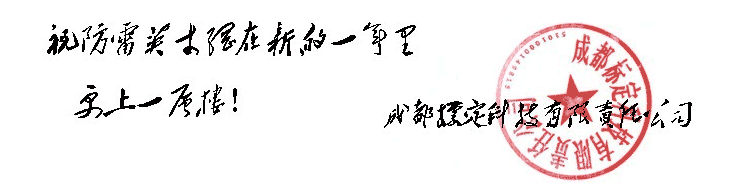 祝防雷英才網在新的一年里
更上一层楼!
成都標定科技有限責任公司
成都标定科技有限责任公司